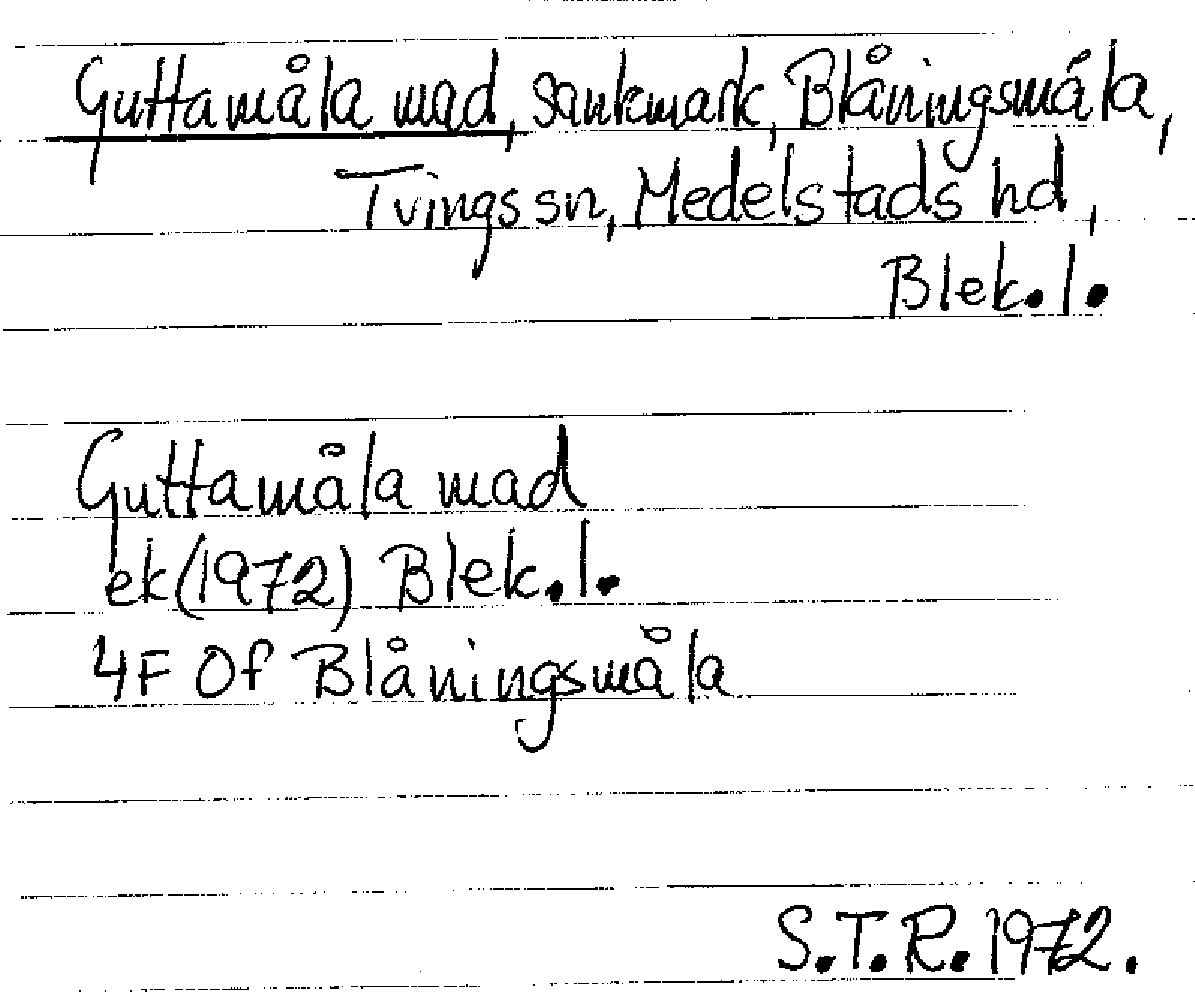 Guttamåla mad, sankmark, Blåningsmåla,
Tvings sn, Medelstads hd,
Blek.l.
Guttamåla mad
ek (1972) Blek.l.
4F 0f Blåningsmåla
S.T.R. 1972.